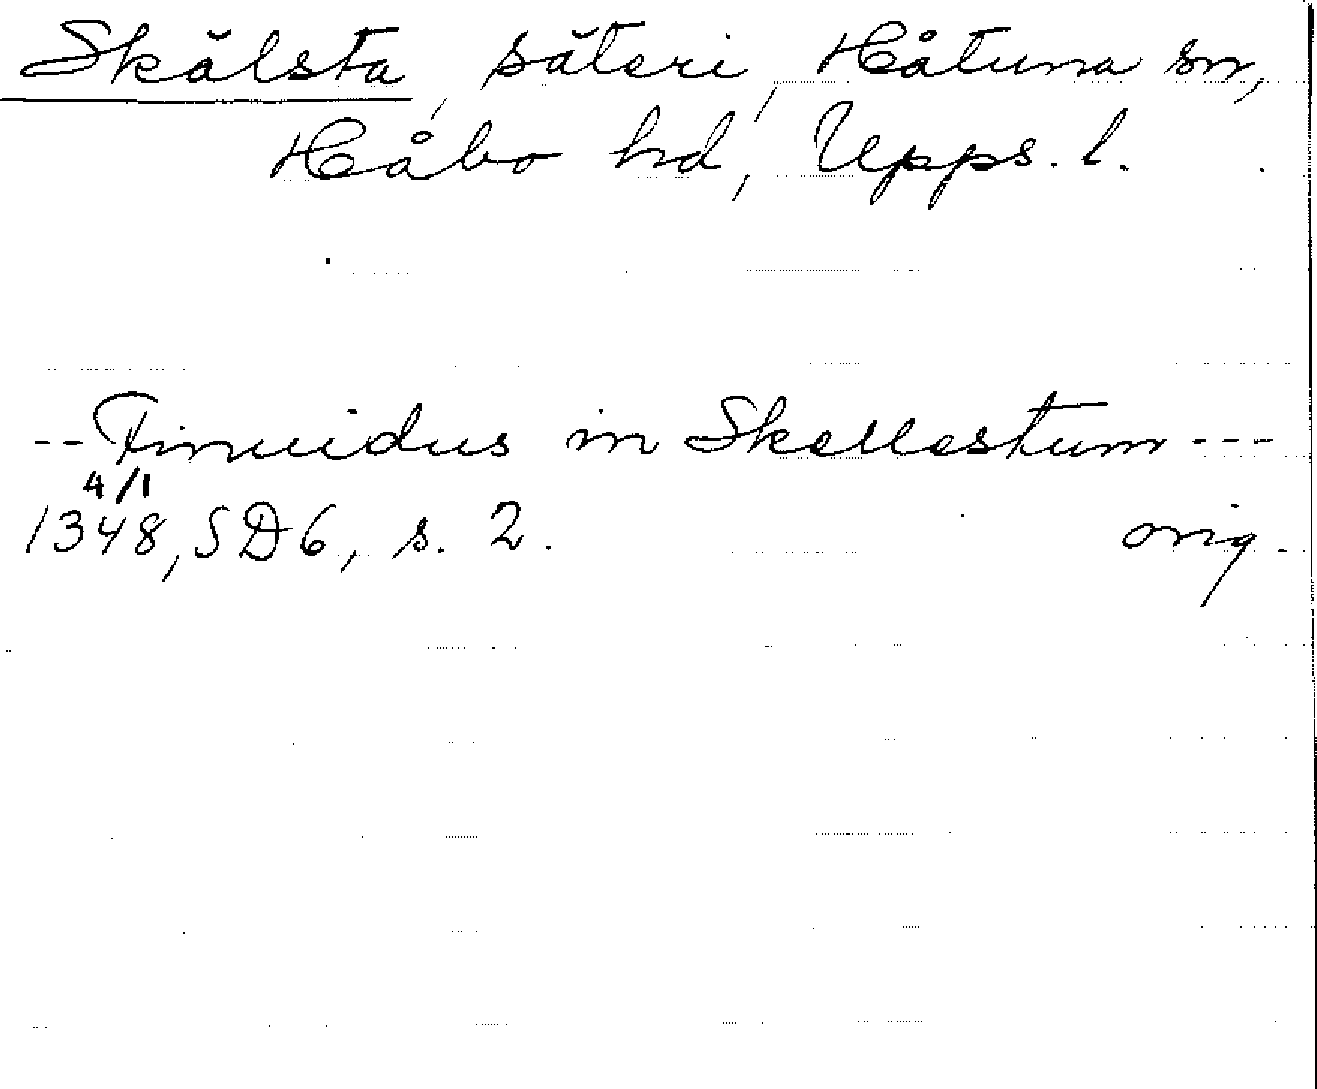 Skälsta, säteri, Håtuna sn,
Håbo hd, Upps. l.
-- Finuidus in Skellestum ---
4/1
1348, SD6, s. 2. orig.